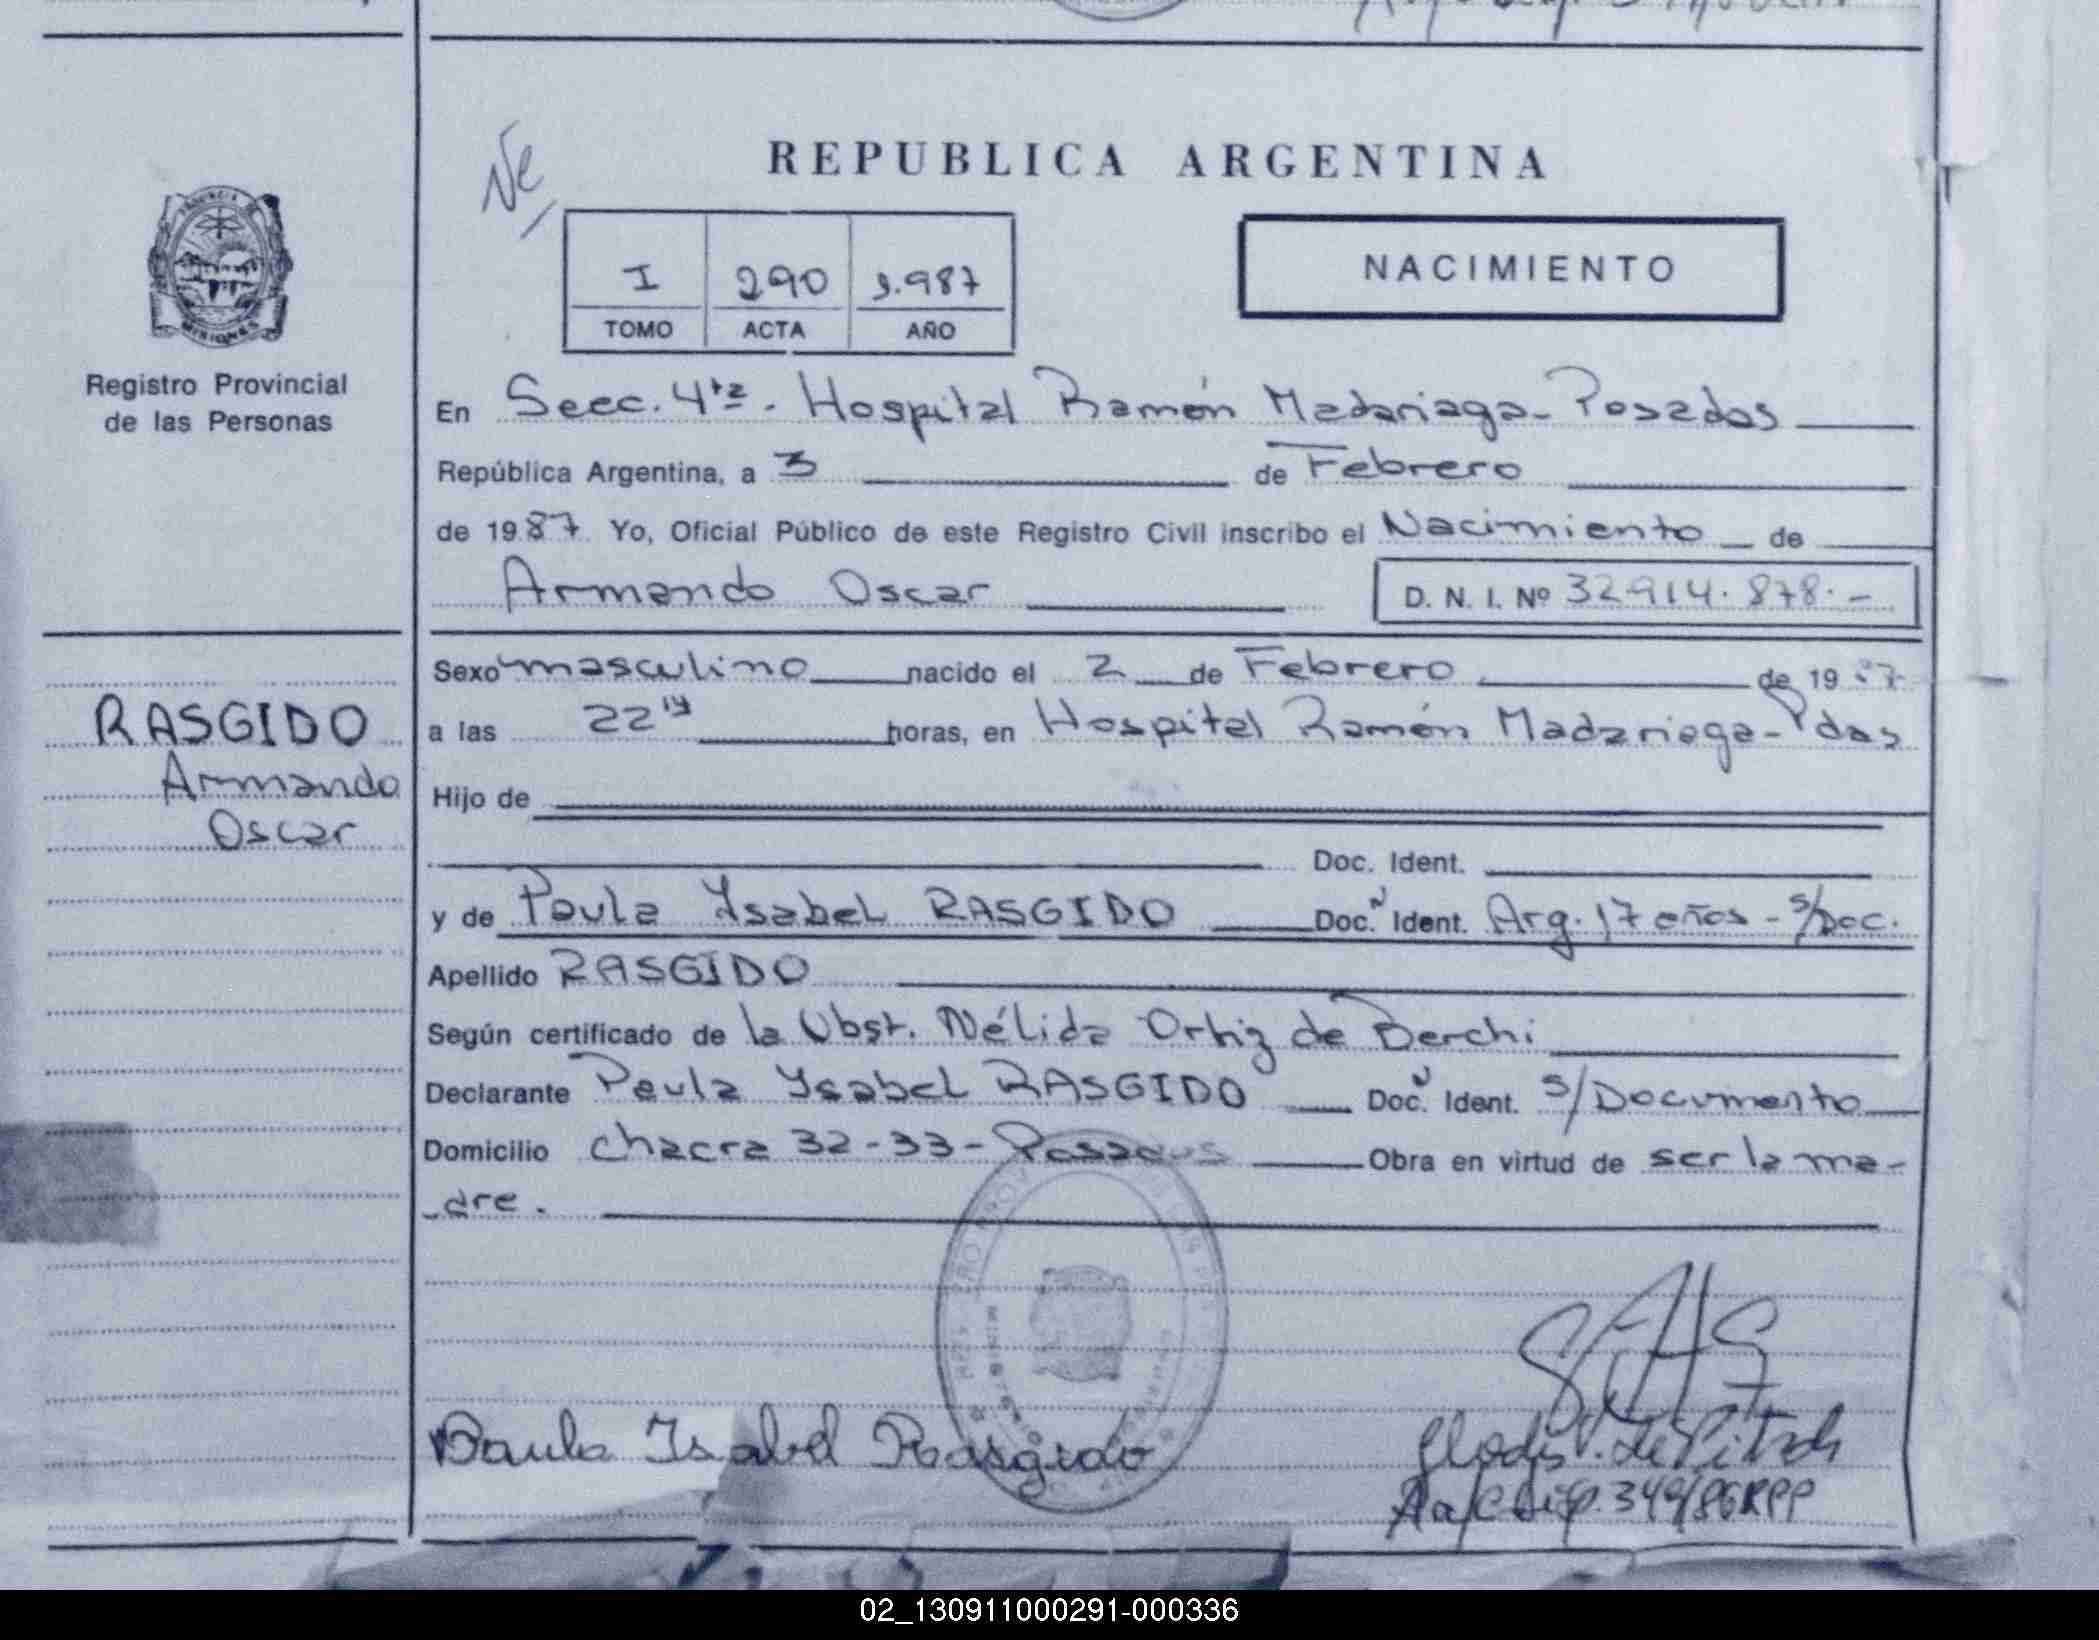 REPUBLICA ARGENTINA
Ne
I 290 1.987
TOMO ACTA AÑO
NACIMIENTO
Registro Provincial
de las Personas
En Secc. 4ta. Hospital Ramón Madariaga - Posadas
República Argentina, a 3 de Febrero
de 1987. Yo, Oficial Público de este Registro Civil inscribo el Nacimiento de
Armando Oscar D. N. I. Nº 32914.878.-
Sexo masculino nacido el 2 de Febrero de 1987
RASGIDO
Armando
Oscar
a las 22 horas, en Hospital Ramón Madariaga - Pdas
Hijo de
Doc. Ident.
y de Paula Ysabel RASGIDO Doc. N Ident. Arg. 17 años - s/Doc.
Apellido RASGIDO
Según certificado de la Obst. Nélida Ortiz de Berchi
Declarante Paula Ysabel RASGIDO Doc. N Ident. s/Documento
Domicilio Chacra 32-33- Posadas Obra en virtud de ser la ma-
dre.
Paula Isabel Rasgido
349/86 RPP
02_130911000291-000336